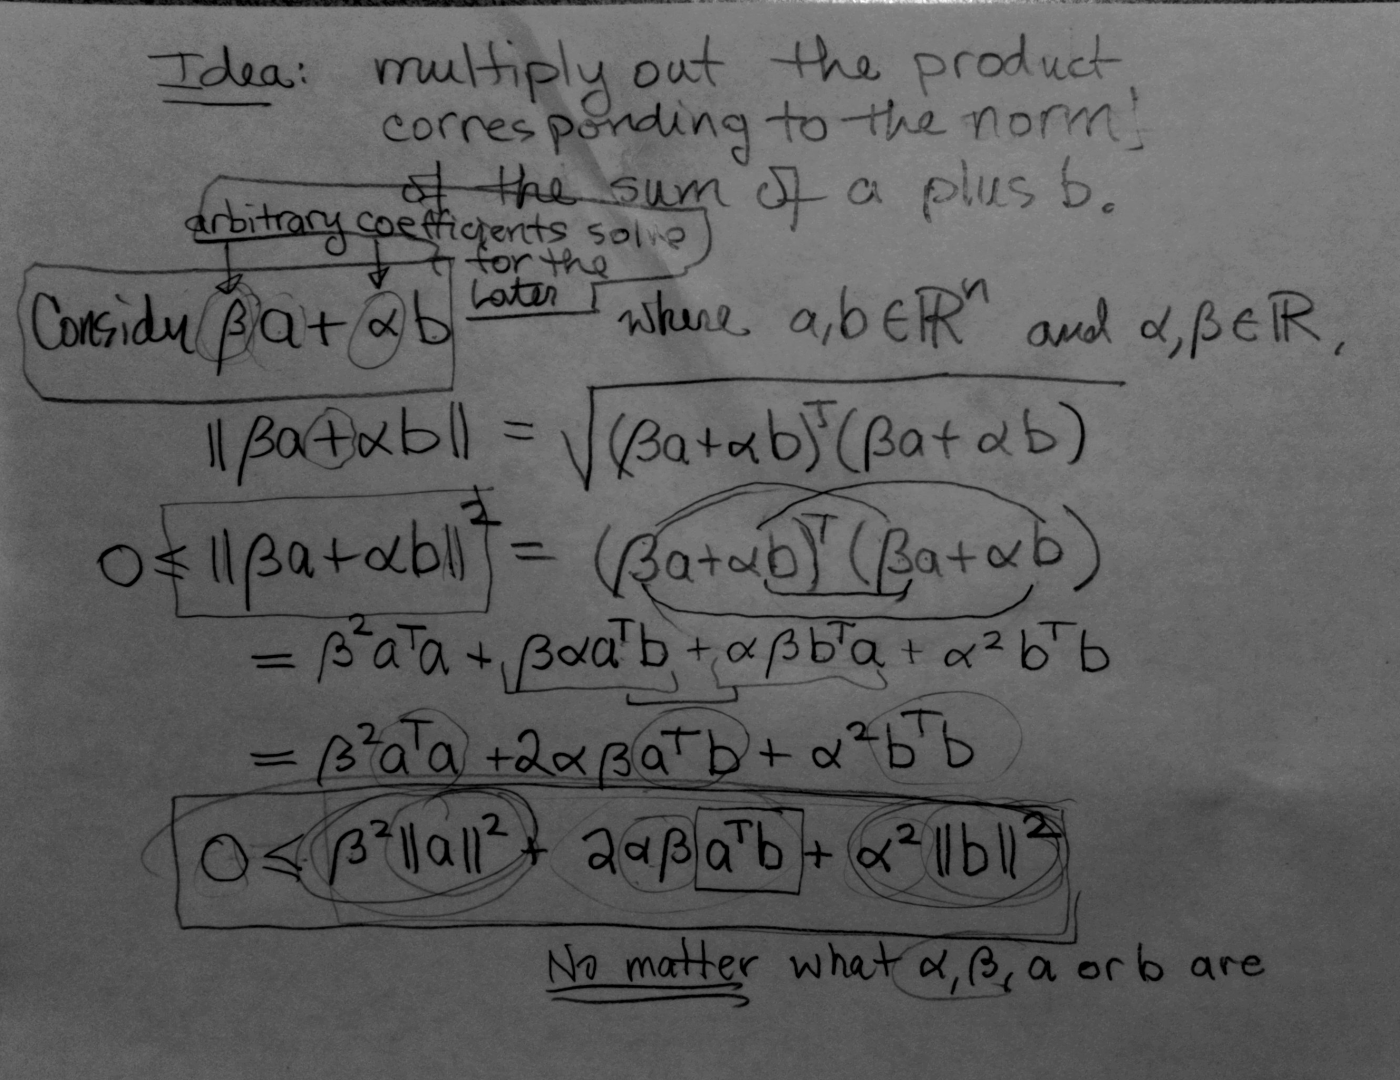 Idea: multiply out the product
corresponding to the norm
of the sum of a plus b.
arbitrary coefficients solve
for the
later
Consider βa + αb where a,b ∈ ℝⁿ and α,β ∈ ℝ,
||βa+αb|| = √((βa+αb)ᵀ(βa+αb))
0 ≤ ||βa+αb||² = (βa+αb)ᵀ(βa+αb)
= β²aᵀa + βαaᵀb + αβbᵀa + α²bᵀb
= β²aᵀa + 2αβaᵀb + α²bᵀb
0 ≤ β²||a||² + 2αβaᵀb + α²||b||²
No matter what α,β, a or b are